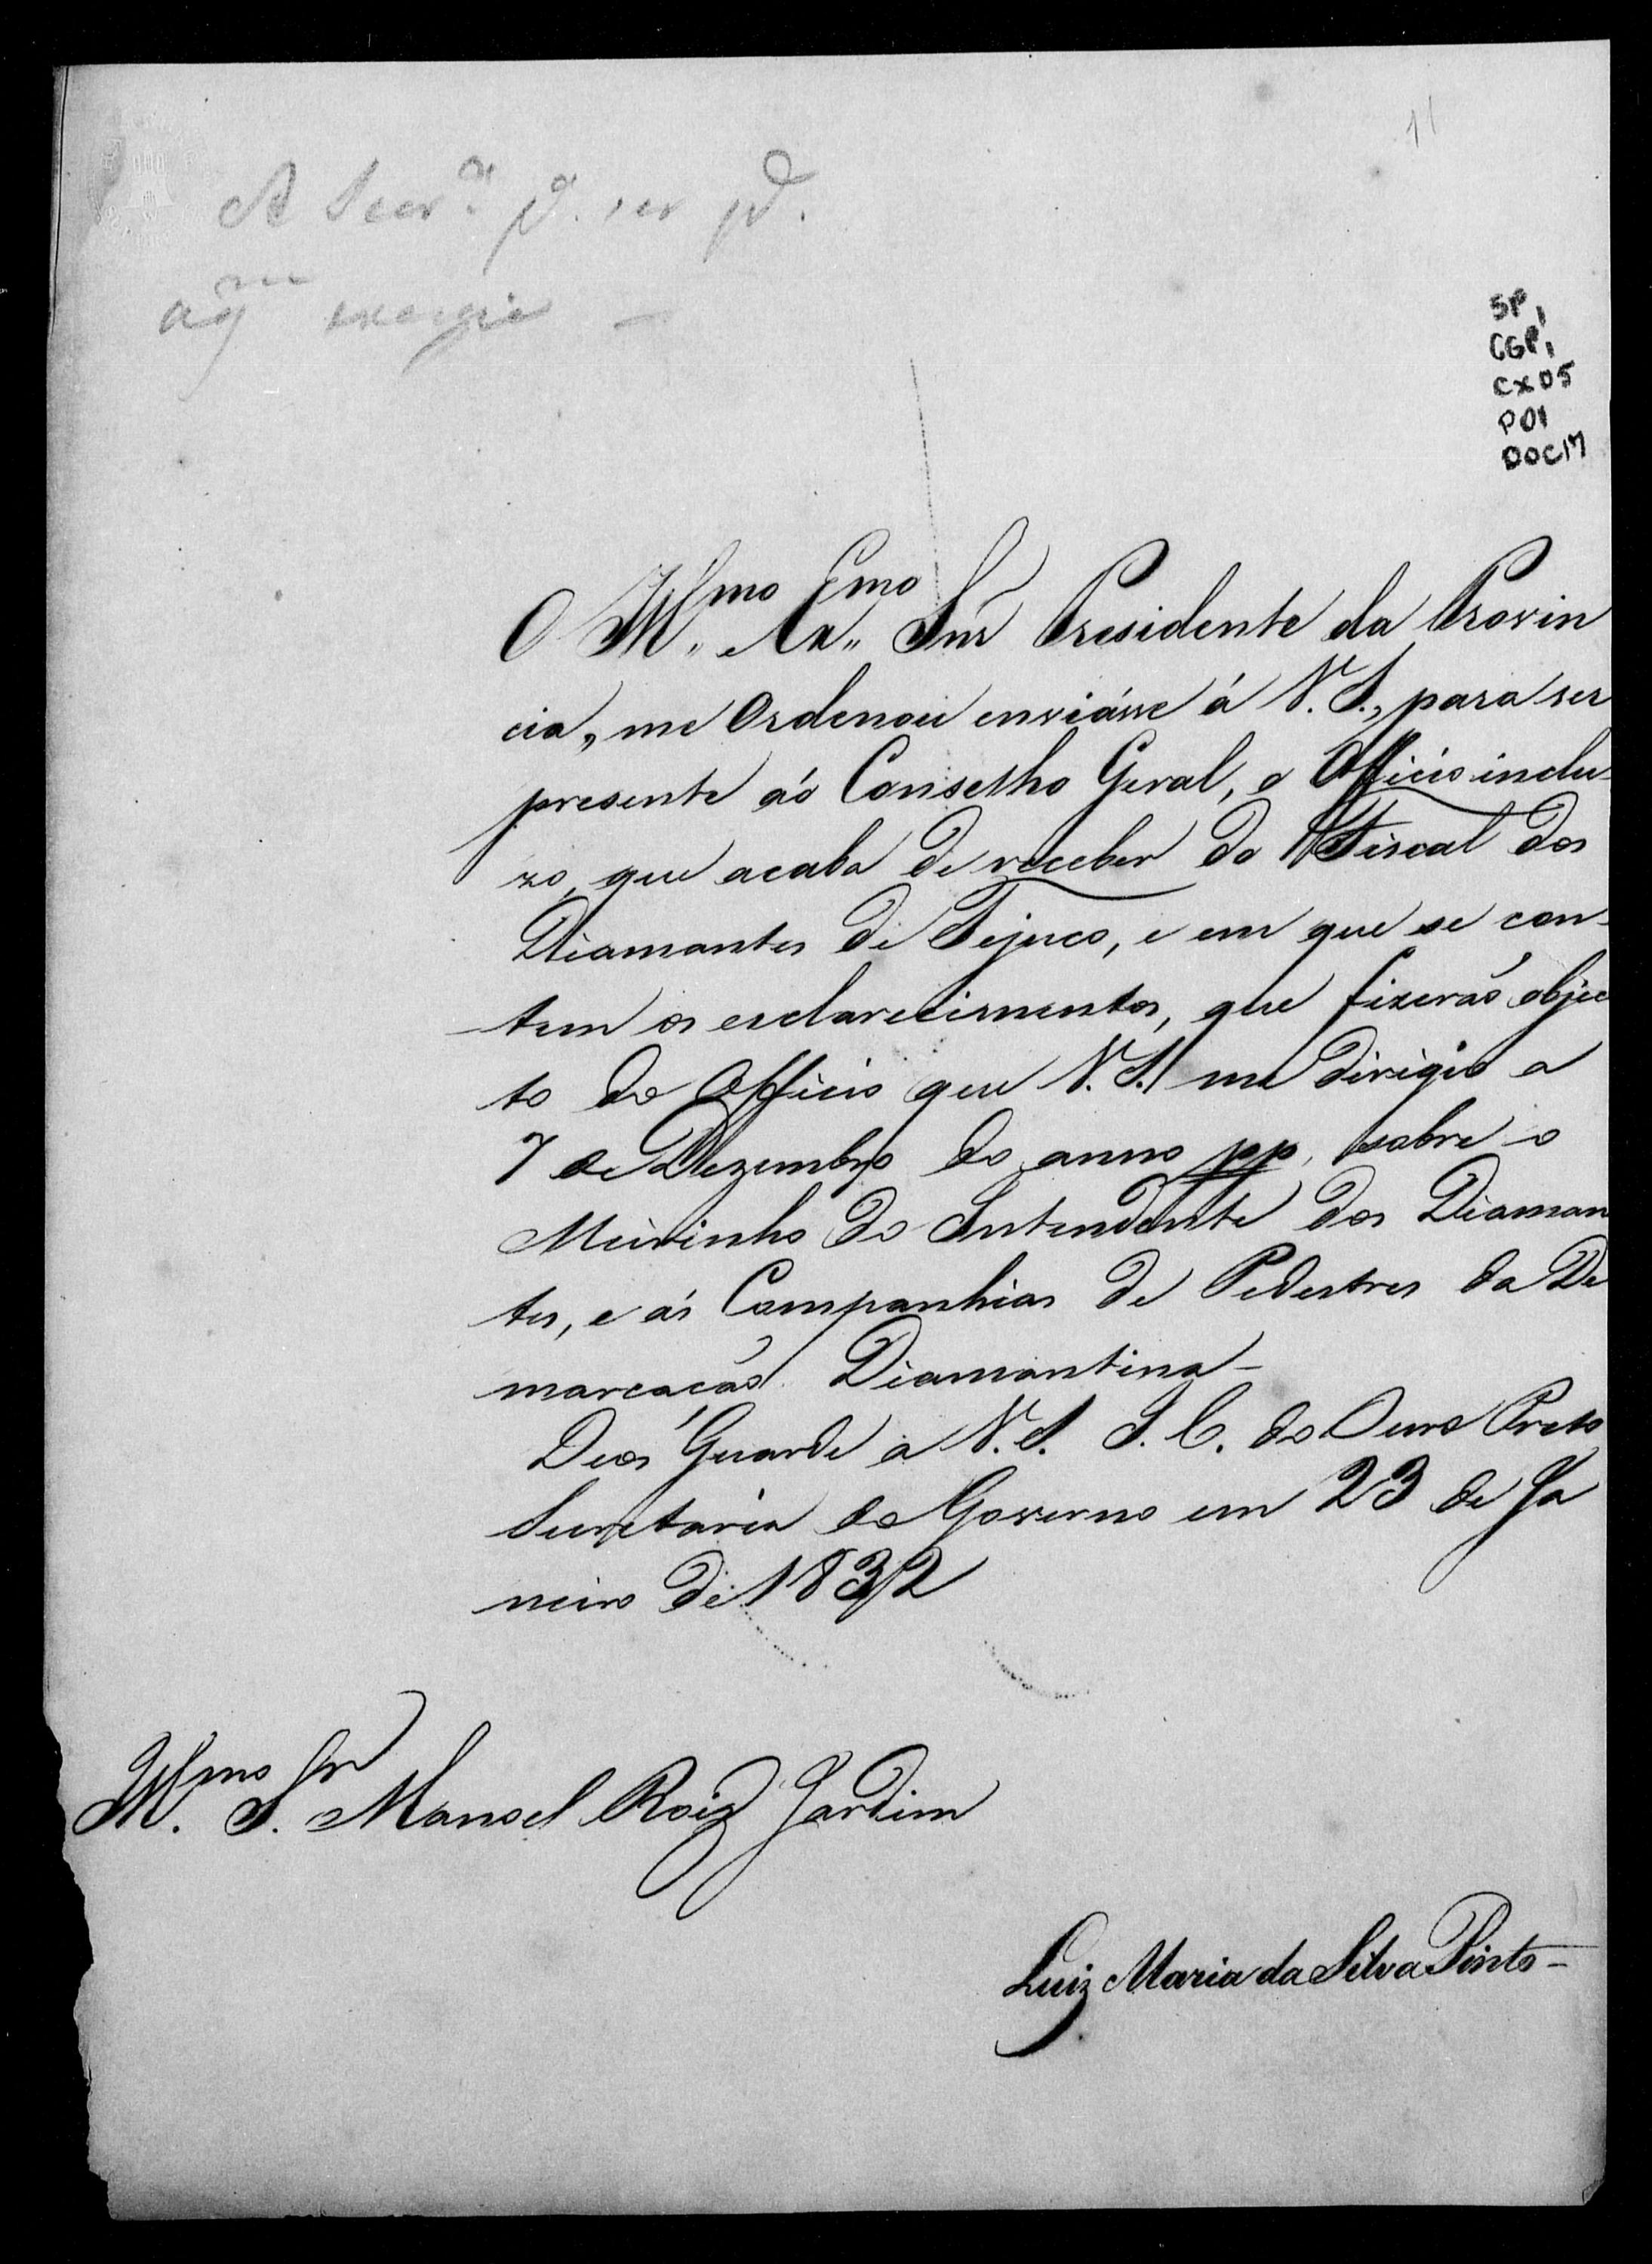 11
A Secr.ª p.ª ser p.ª
a q.m exigio —
SP,
CGP,
CX05
P01
DOC17
O Ill.mo Ex.mo Snr Presidente da Provin
cia, me Ordenou enviásse á V. S., para ser
presente áo Conselho Geral, o Officio inclu-
zo, que acaba de receber do Fiscal dos
Diamantes de Tejuco, e em que se con-
tem os esclarecimentos, que fizerão objec
to do Officio que V. S. me dirigio a
7 de Dezembro do anno pp, sobre o
Meirinho do Intendente dos Diaman
tes, e ás Companhias de Pedestres da De
marcação Diamantina-
Deos Guarde a V. S. I. C. do Ouro Preto
Secretaria do Governo em 23 de Ja
neiro de 1832
Ill.mo Snr. Manoel Roiz Jardim
Luiz Maria da Silva Pinto-